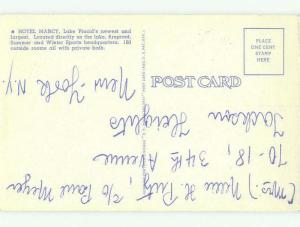 ★ HOTEL MARCY, Lake Placid's newest and
largest. Located directly on the lake, fireproof.
Summer and Winter Sports headquarters. 150
outside rooms all with private bath.
PLACE
ONE CENT
STAMP
HERE
POST CARD
(Mrs.) Nellie H. Pratz, c/o Paul Meyer
70-18, 34th Avenue
Jackson Heights
New York N.Y.